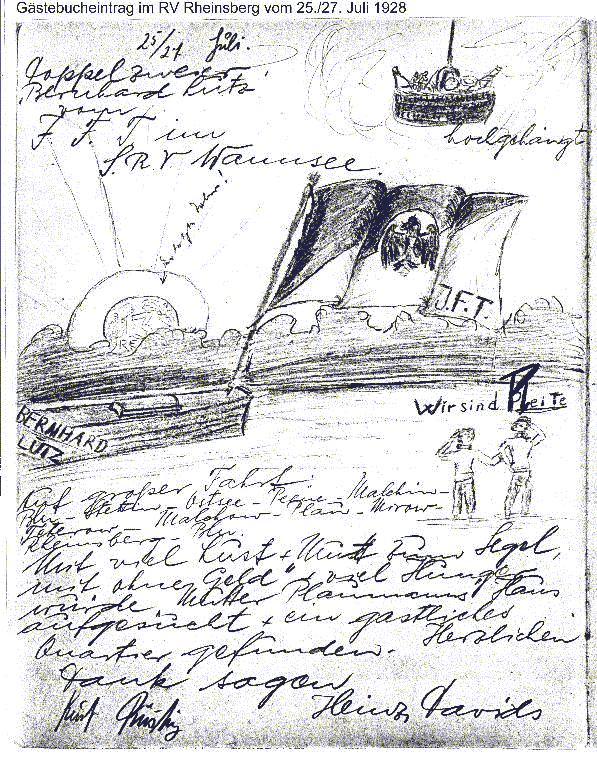 Gästebucheintrag im RV Rheinsberg vom 25./27. Juli 1928
25/27. Juli.
Doppelzweier
"Bernhard Lutz"
vom
J. F. T im
S.R.V Wannsee.
hochgehängt
J.F.T.
Wir sind Pleite
BERNHARD
LUTZ
Auf großer Fahrt:
Bln - Stettin - Ostsee - Peene - Malchin -
Teterow - Malchow - Plau - Mirow -
Rheinsberg - Bln.
Mit viel Lust + Mut zum Segel,
mit ohne Geld + viel Hunger
wurde Mutter Plaumanns Haus
aufgesucht + ein gastliches
Quartier gefunden. Herzlichen
Dank sagen
Kurt
Heinz Davids